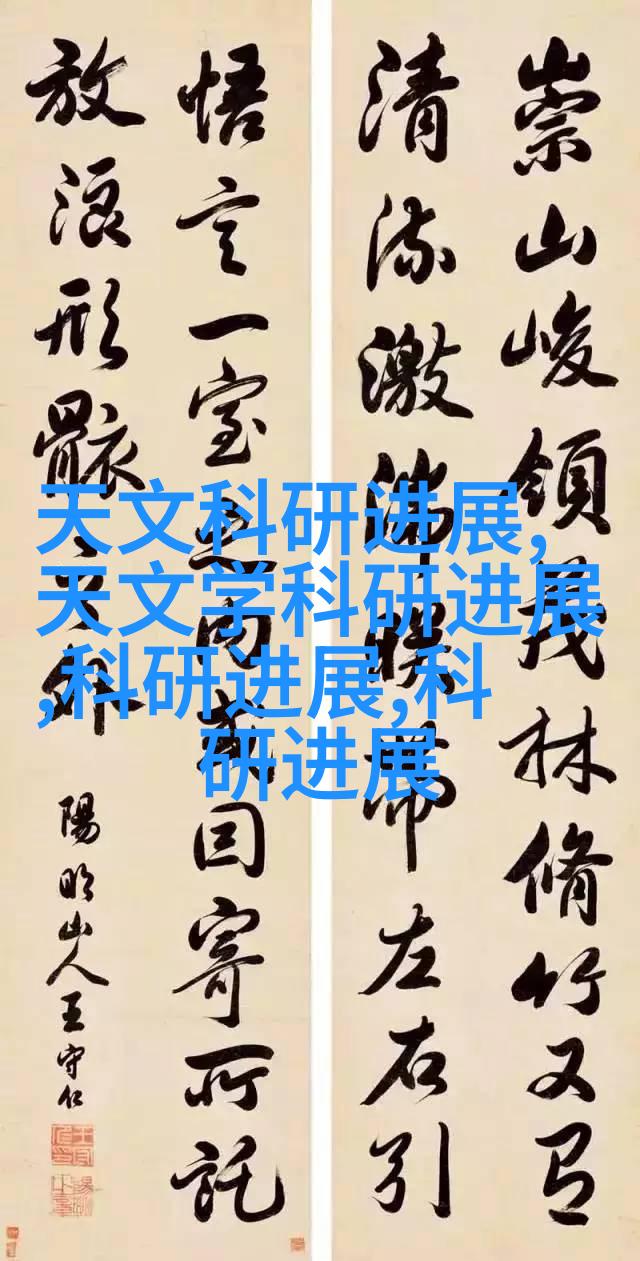 崇山峻領茂林脩竹又有
清流激湍暎帶左右引
悟言一室之内或因寄所託
放浪形骸之外
陽明山人王守仁
天文科研进展,
天文学科研进展
,科研进展,科
研进展